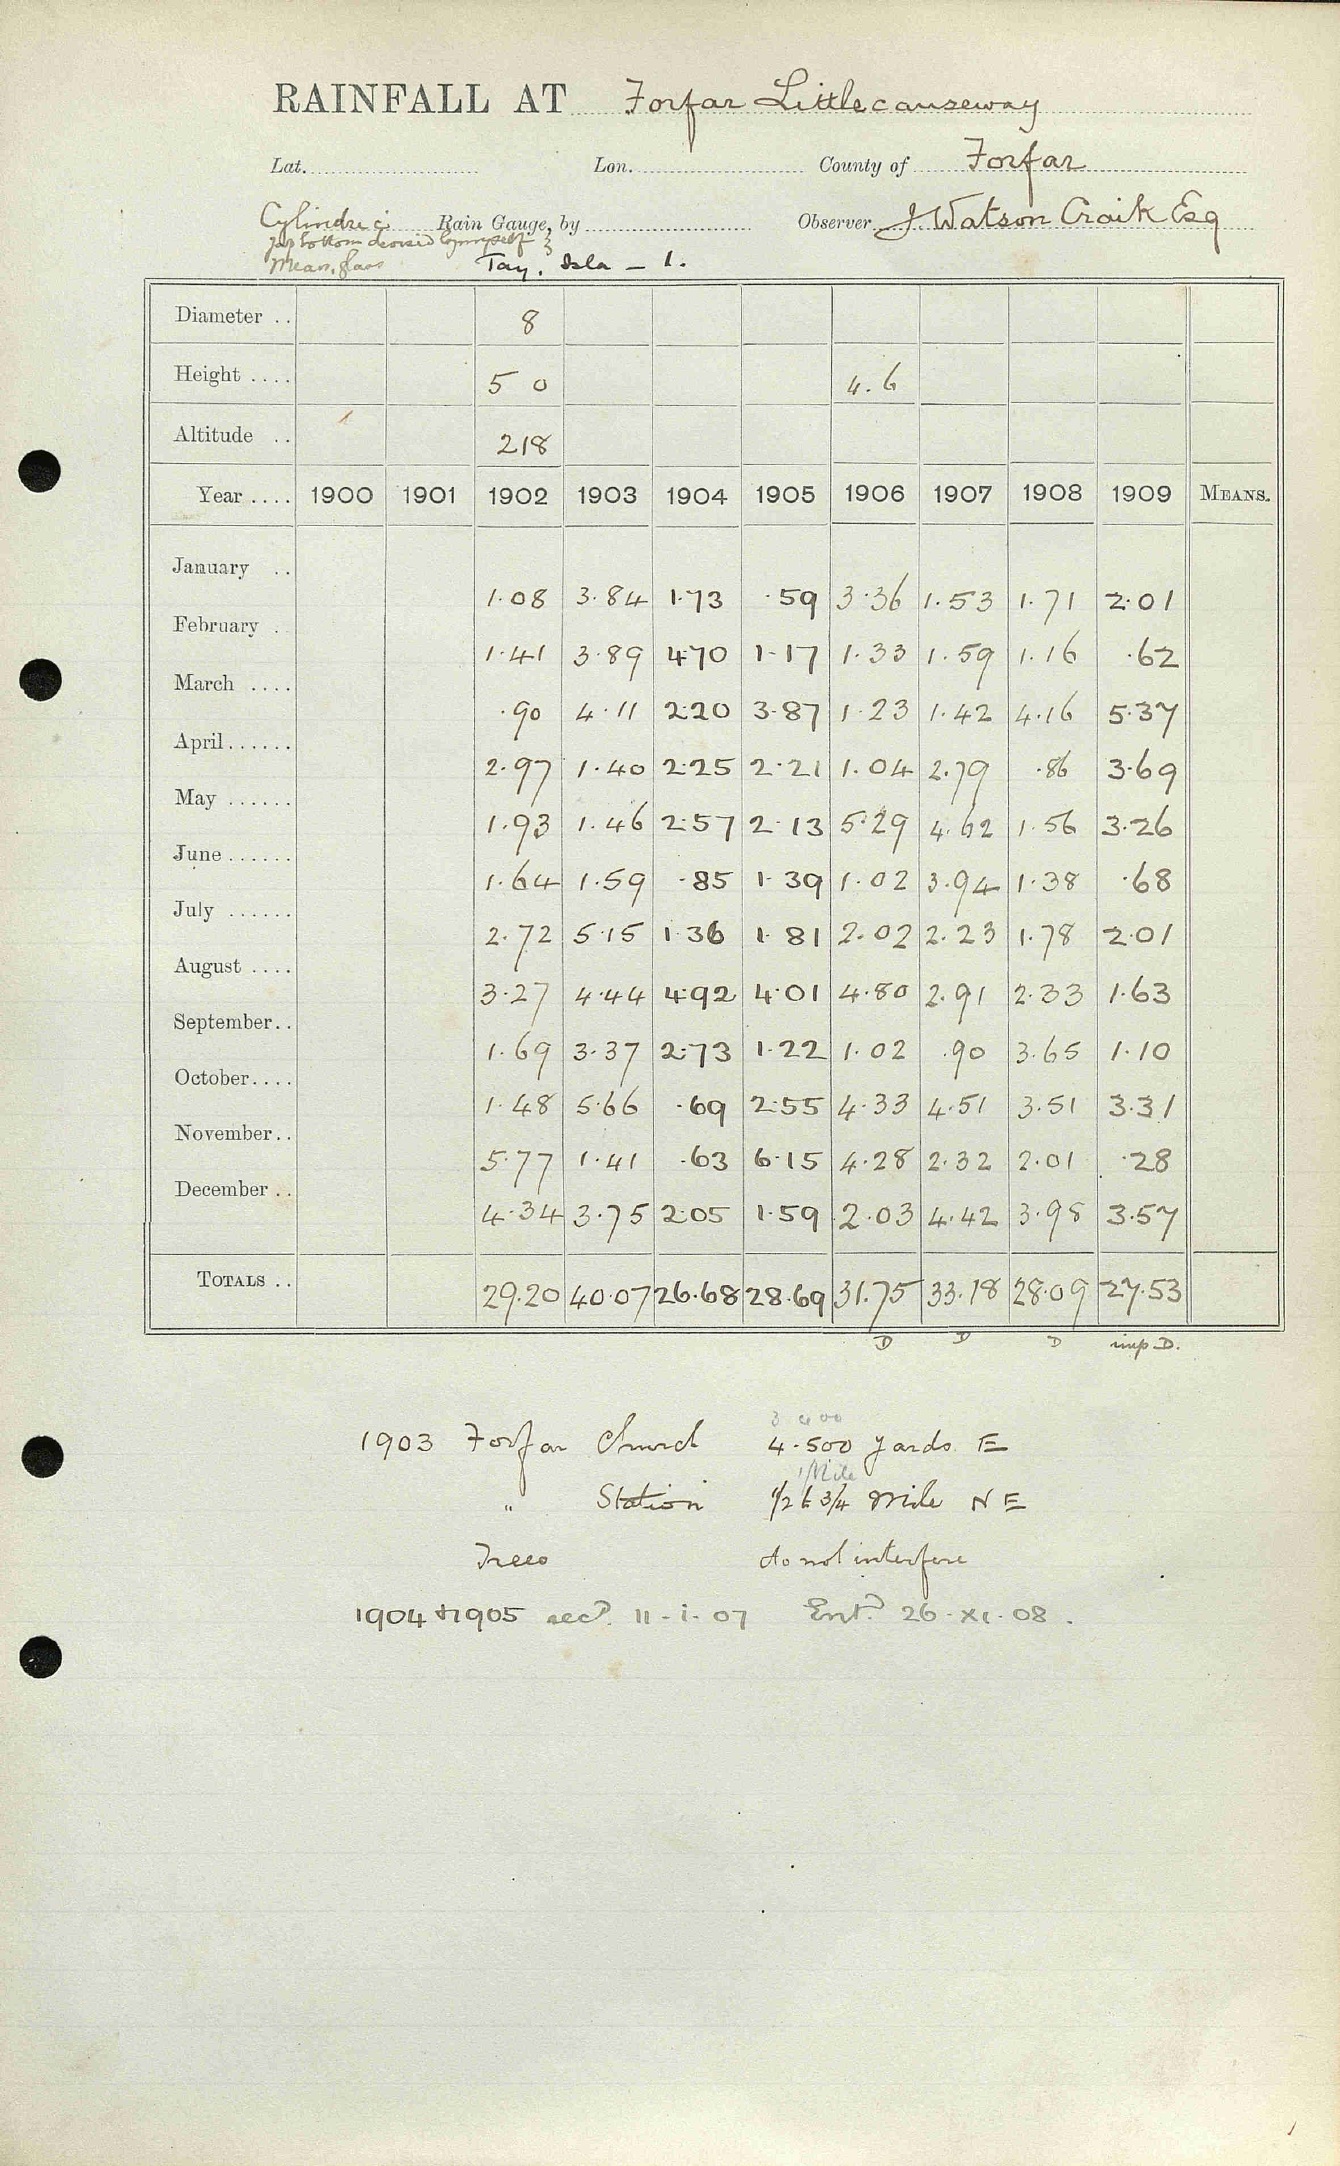 RAINFALL AT Forfar Littlecauseway
Lat. Lon. County of Forfar
Cylindric Rain Gauge, by Observer J Watson Craik Esq
tap bottom devised by myself &
Meas. glass Tay, Isla – 1.
Diameter .. 8
Height .... 5 0 4.6
Altitude .. 218
Year .... 1900 1901 1902 1903 1904 1905 1906 1907 1908 1909 MEANS.
January .. 1.08 3.84 1.73 .59 3.36 1.53 1.71 2.01
February . 1.41 3.89 4.70 1.17 1.33 1.59 1.16 .62
March .... .90 4.11 2.20 3.87 1.23 1.42 4.16 5.37
April...... 2.97 1.40 2.25 2.21 1.04 2.79 .86 3.69
May ...... 1.93 1.46 2.57 2.13 5.29 4.62 1.56 3.26
June...... 1.64 1.59 .85 1.39 1.02 3.94 1.38 .68
July ...... 2.72 5.15 1.36 1.81 2.02 2.23 1.78 2.01
August .... 3.27 4.44 4.92 4.01 4.80 2.91 2.33 1.63
September.. 1.69 3.37 2.73 1.22 1.02 .90 3.65 1.10
October.... 1.48 5.66 .69 2.55 4.33 4.51 3.51 3.31
November.. 5.77 1.41 .63 6.15 4.28 2.32 2.01 .28
December .. 4.34 3.75 2.05 1.59 2.03 4.42 3.98 3.57
TOTALS .. 29.20 40.07 26.68 28.69 31.75 33.18 28.09 27.53
D D D imp D.
3 400
1903 Forfar Church 4.500 yards E
1 Mile
" Station 1/2 to 3/4 Mile N E
Trees do not interfere
1904 & 1905 recd. 11-i-07 Entd. 26-XI-08.